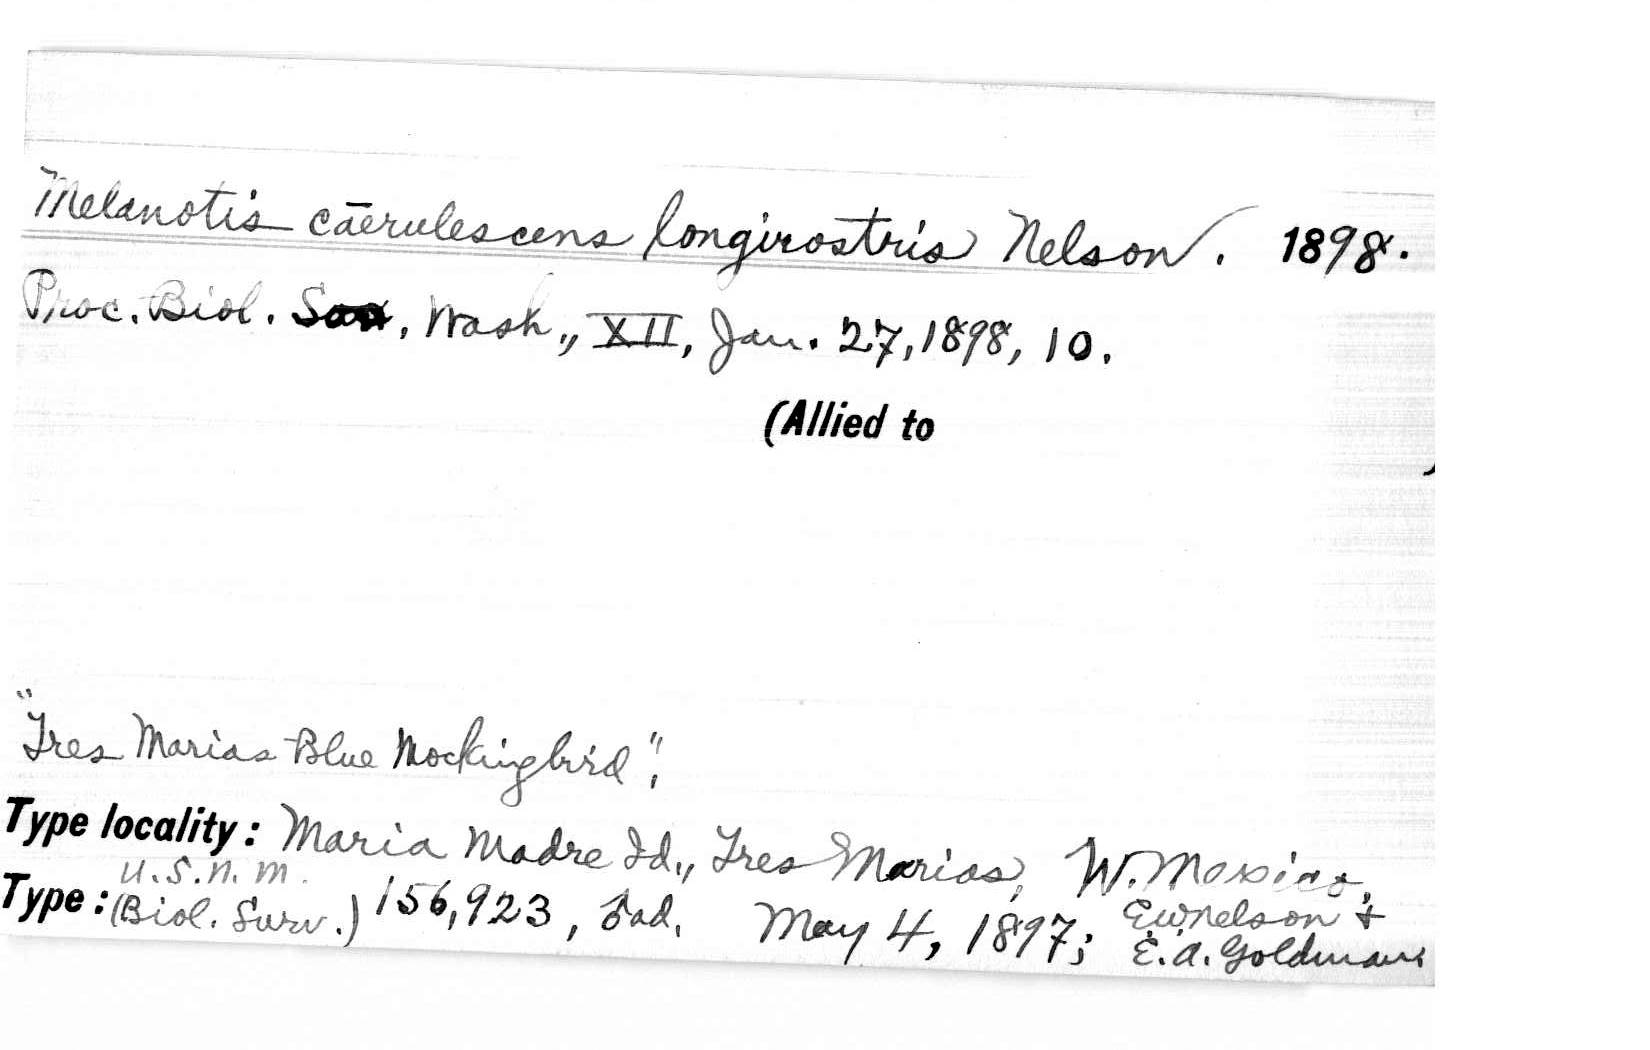 Melanotis cāerulescens longirostris Nelson. 1898.
Proc. Biol. Soc, Wash., XII, Jan. 27, 1898, 10.
(Allied to
)
"Tres Marias Blue Mockingbird";
Type locality: Maria Madre Id., Tres Marias, W. Mexico,
U.S.N.M.
Type: (Biol. Surv.) 156,923, ad. May 4, 1897; E.W. Nelson &
E.A. Goldman